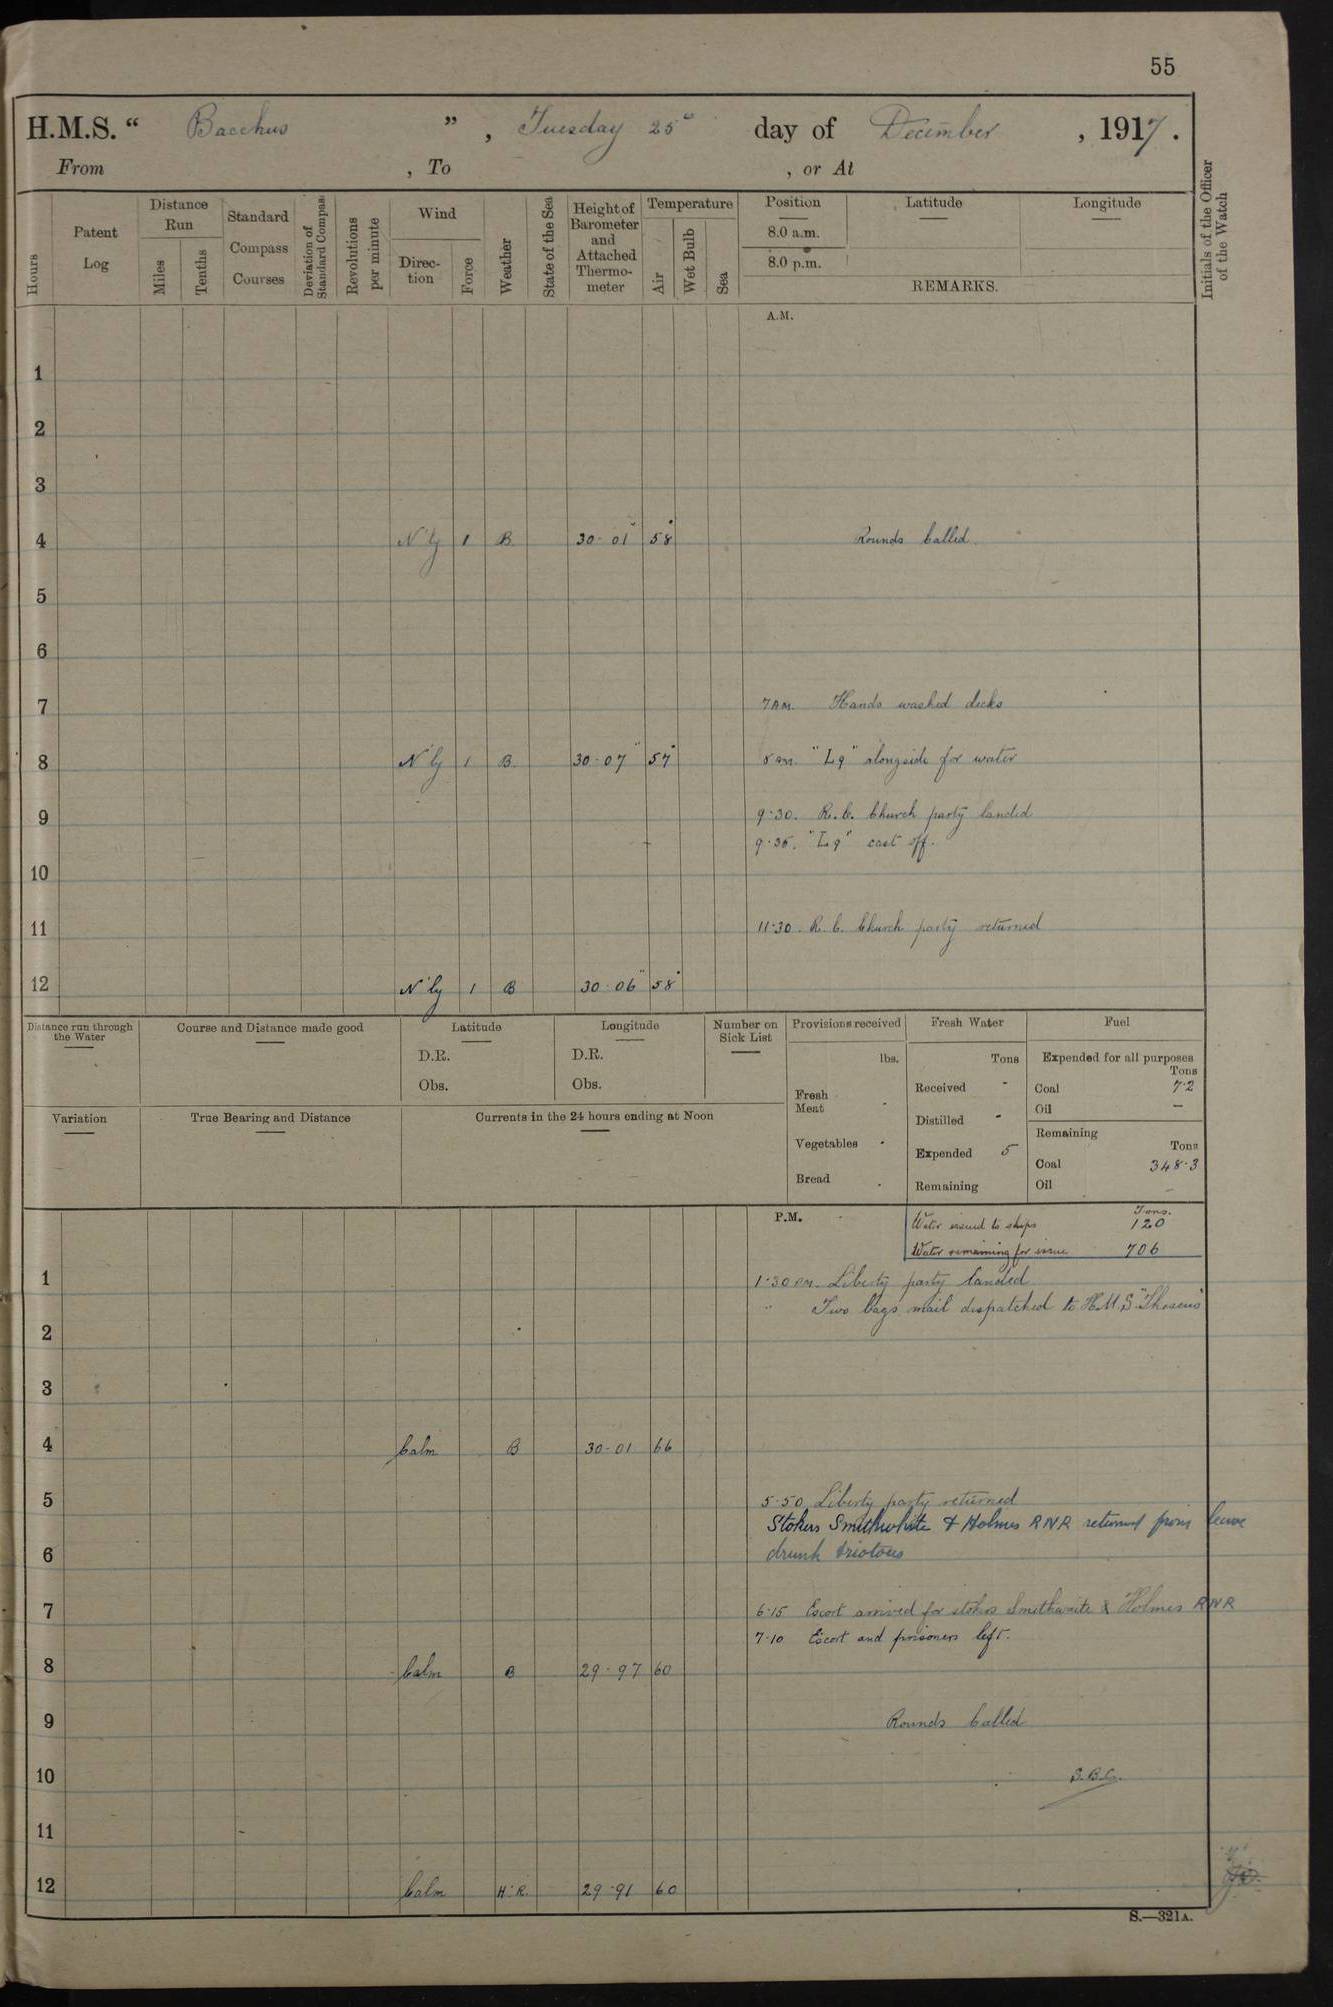 55
H.M.S. “ Bacchus ” , Tuesday 25th day of December , 1917 .
From , To , or At
Hours
Patent Log
Distance Run
Miles
Tenths
Standard Compass Courses
Deviation of Standard Compass
Revolutions per minute
Wind
Direction
Force
Weather
State of the Sea
Height of Barometer and Attached Thermometer
Temperature
Air
Wet Bulb
Sea
Position
8.0 a.m.
8.0 p.m.
Latitude
Longitude
REMARKS.
Initials of the Officer of the Watch
A.M.
1
2
3
4 N'ly 1 B 30·01" 58° Rounds Called.
5
6
7 7 AM. Hands washed decks
8 N'ly 1 B. 30·07" 57° 8 am. "L9" alongside for water
9 9·30. R.C. Church party landed
9·35. "L9" cast off.
10
11 11·30. R.C. Church party returned
12 N'ly 1 B 30·06" 58°
Distance run through the Water
Course and Distance made good
Latitude
D.R.
Obs.
Longitude
D.R.
Obs.
Number on Sick List
Provisions received
lbs.
Fresh Meat -
Vegetables -
Bread -
Fresh Water
Tons
Received -
Distilled -
Expended 5
Remaining
Fuel
Expended for all purposes
Tons
Coal 7·2
Oil —
Remaining
Tons
Coal 348·3
Oil —
Variation
True Bearing and Distance
Currents in the 24 hours ending at Noon
P.M.
Tons.
Water issued to ships 120
Water remaining for issue 706
1 1·30 PM. Liberty party landed
" Two bags mail dispatched to H.M.S. "Theseus"
2
3
4 Calm B 30·01 66
5 5·50 Liberty party returned
Stokers Smithwhite & Holmes RNR returned from leave
6 drunk & riotous
7 6·15 Escort arrived for stokers Smithwaite & Holmes RNR
7·10 Escort and prisoners left.
8 Calm B 29·97 60
9 Rounds Called
10 S.B.C.
11
12 Calm H.R. 29·91 60
S.—321A.